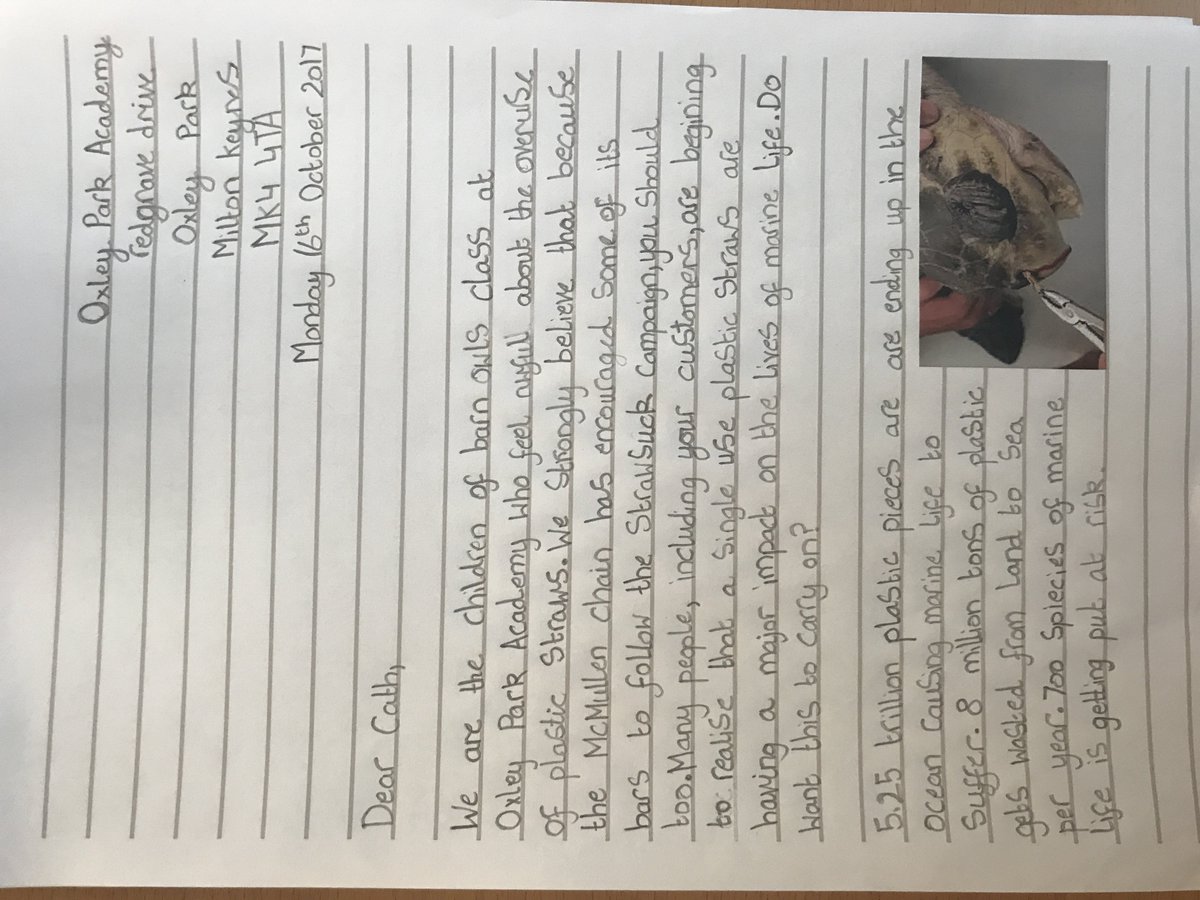 Oxley Park Academy
redgrave drive
Oxley Park
Milton keynes
MK4 4TA
Monday 16th October 2017
Dear Cath,
We are the children of barn owls class at
Oxley Park Academy who feel awful about the overuse
of plastic straws. We strongly believe that because
the McMullen chain has encouraged some of its
bars to follow the StrawSuck Campaign, you should
too. Many people, including your customers, are begining
to realise that a single use plastic straws are
having a major impact on the lives of marine life. Do
want this to carry on?
5.25 trillion plastic pieces are are ending up in the
ocean causing marine life to
suffer. 8 million tons of plastic
gets wasted from land to sea
per year. 700 spiecies of marine
life is getting put at risk.